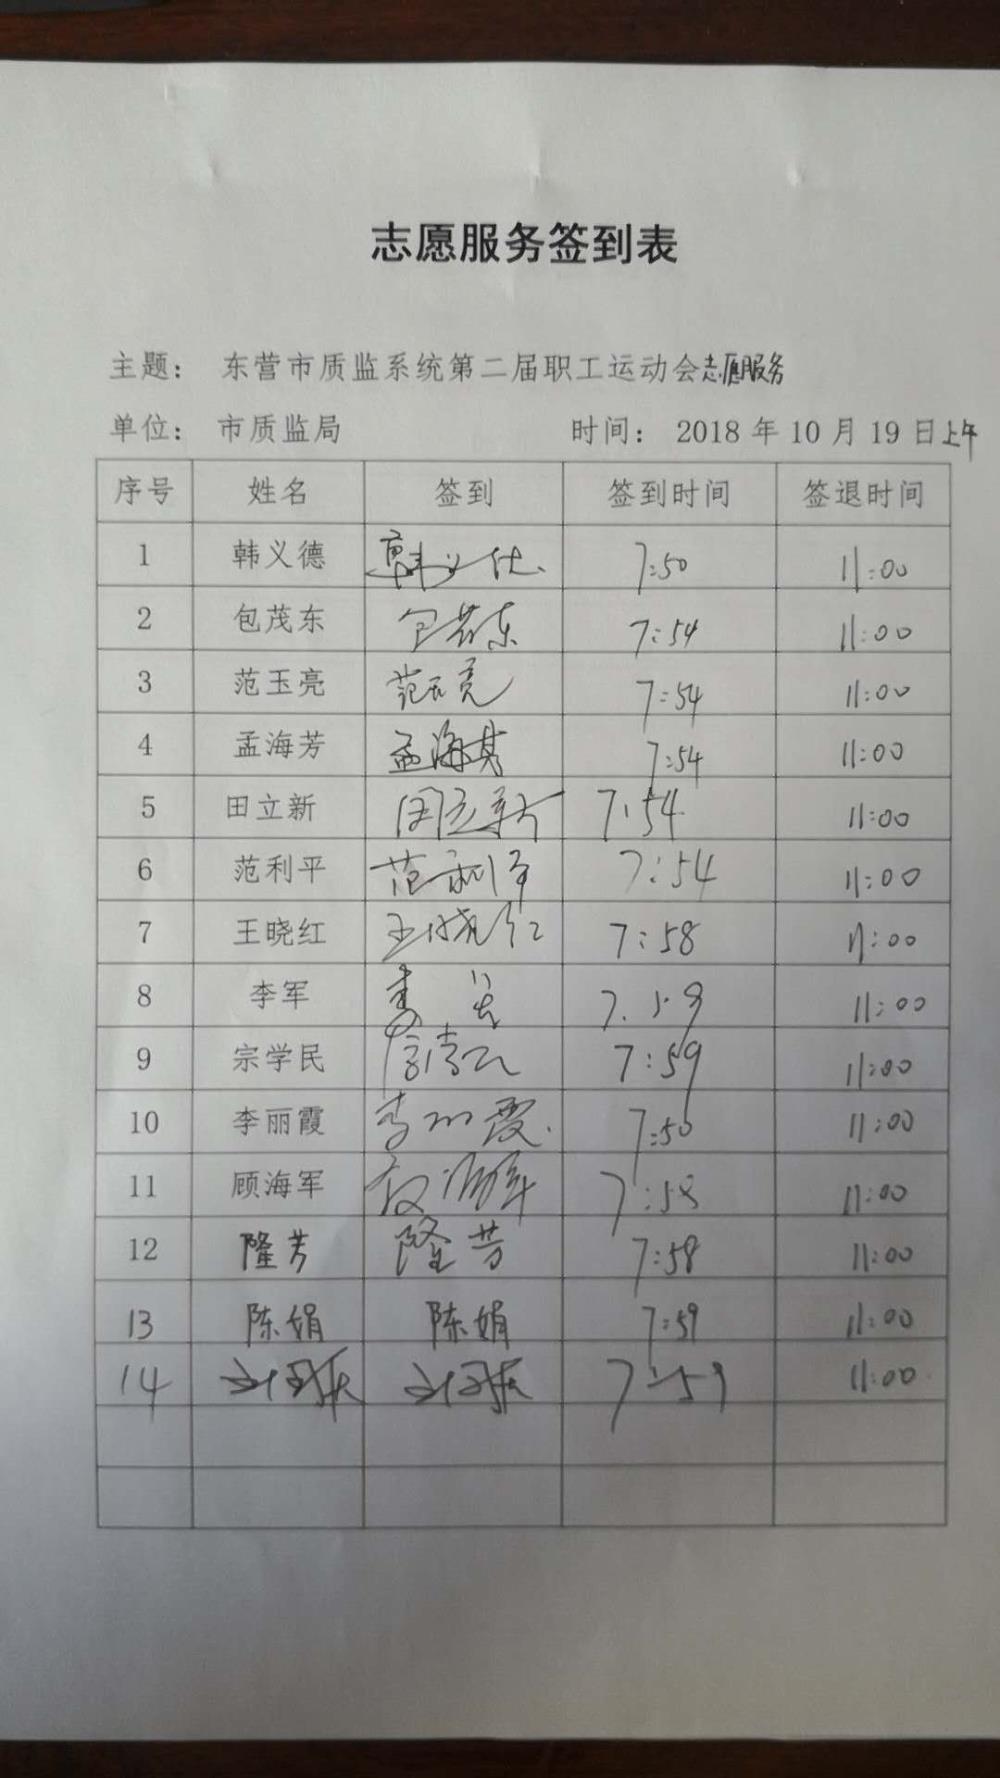 志愿服务签到表
主题： 东营市质监系统第二届职工运动会志愿服务
单位： 市质监局 时间： 2018 年 10 月 19 日上午
序号 姓名 签到 签到时间 签退时间
1 韩义德 韩义德 7:50 11:00
2 包茂东 包茂东 7:54 11:00
3 范玉亮 范玉亮 7:54 11:00
4 孟海芳 孟海芳 7:54 11:00
5 田立新 田立新 7:54 11:00
6 范利平 范利平 7:54 11:00
7 王晓红 王晓红 7:58 11:00
8 李军 李军 7:59 11:00
9 宗学民 7:59 11:00
10 李丽霞 李丽霞 7:50 11:00
11 顾海军 顾海军 7:58 11:00
12 隆芳 隆芳 7:58 11:00
13 陈娟 陈娟 7:59 11:00
14 7:59 11:00